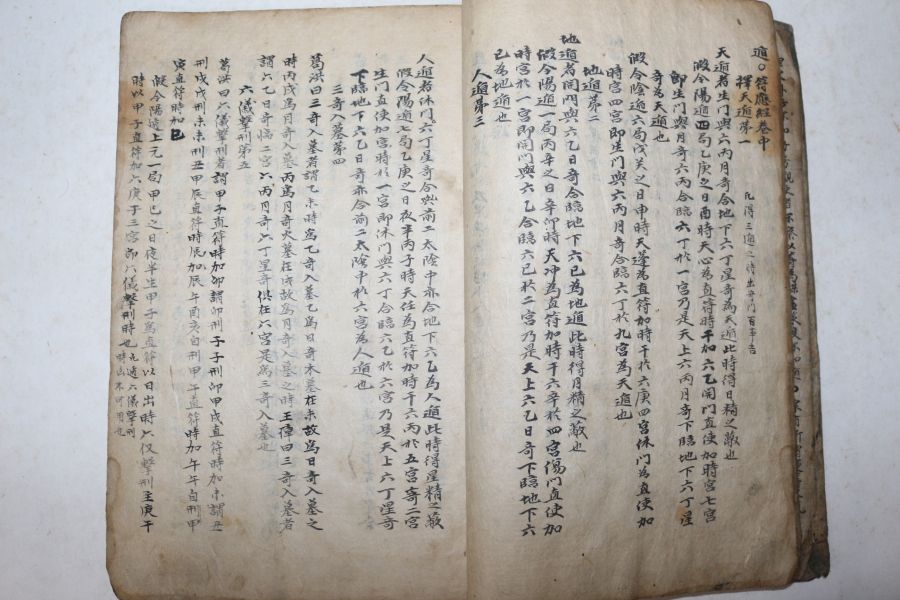 遁○符應經卷中
釋天遁第一
天遁者生門與六丙月奇合地下六丁星奇為天遁此時得日精之蔽也
假令陽遁四局乙庚之日酉時天心為直符時干加六乙開門直使加時宮七宮
即生門與月奇六丙合臨六丁於一宮乃是天上六丙月奇下臨地下六丁星
奇為天遁也
假令陰遁六局戊癸之日申時天蓬為直符加時干於六庚四宮休門為直使加
時宮四宮即生門與六丙月奇合臨六丁於九宮為天遁也
地遁第二
地遁者開門與六乙日奇合臨地下六己為地遁此時得月精之蔽也
假令陽遁一局丙辛之日辛卯時天冲為直符加時干六辛於四宮傷門直使加
時宮於一宮即開門與六乙合臨六己於二宮乃是天上六乙日奇下臨地下六
己為地遁也
人遁第三
人遁者休門六丁星奇合與前二太陰中亦合地下六乙為人遁此時得星精之蔽
假令陽遁七局乙庚之日夜半丙子時天任為直符加時干六丙於五宮寄二宮
生門直使加宮時於一宮即休門與六丁合臨六乙於六宮乃是天上六丁星奇
下臨地下六乙日奇亦合前二太陰中於六宮為人遁也
三奇入墓第四
葛洪曰三奇入墓者謂乙未時為乙奇入墓乙為日奇木墓在未故為日奇入墓之
時丙戌為月奇入墓丙為月奇火墓在戌故為月奇入墓之時王璋曰三奇入墓者
謂六乙日奇臨二宮六丙月奇六丁星奇俱在六宮是為三奇入墓也
六儀擊刑第五
葛洪曰六儀擊刑者謂甲子直符時加卯謂卯刑子子刑卯甲戌直符時加未謂丑
刑戌戌刑未未刑丑甲辰直符時辰加辰午酉亥自刑甲午直符時加午午自刑甲
寅直符時加巳
假令陽遁上元一局甲己之日夜半生甲子為直符以日出時六仪擊刑主庚午
時以甲子直符加六庚于三宮即六儀擊刑時也凡遁六儀擊刑
時凶不可用也
凡得三遁之時出奇門百事吉